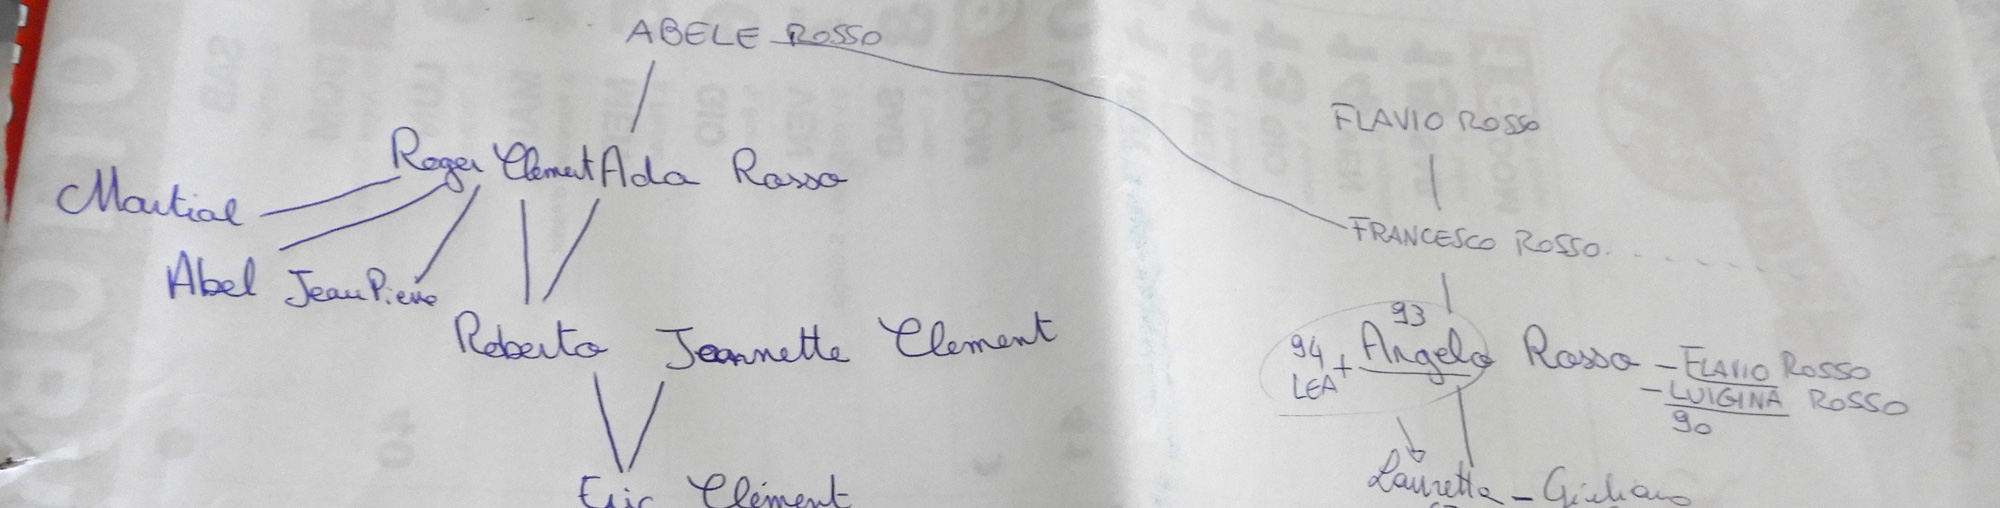 ABELE ROSSO
FLAVIO ROSSO
Roger Clement Ada Rosso
Martial
FRANCESCO ROSSO
Abel Jean Pierre
93
94 + Angelo Rosso - FLAVIO ROSSO
LEA
- LUIGINA ROSSO
90
Roberto Jeannette Clement
Lauretta - Giuliano
Eric Clément